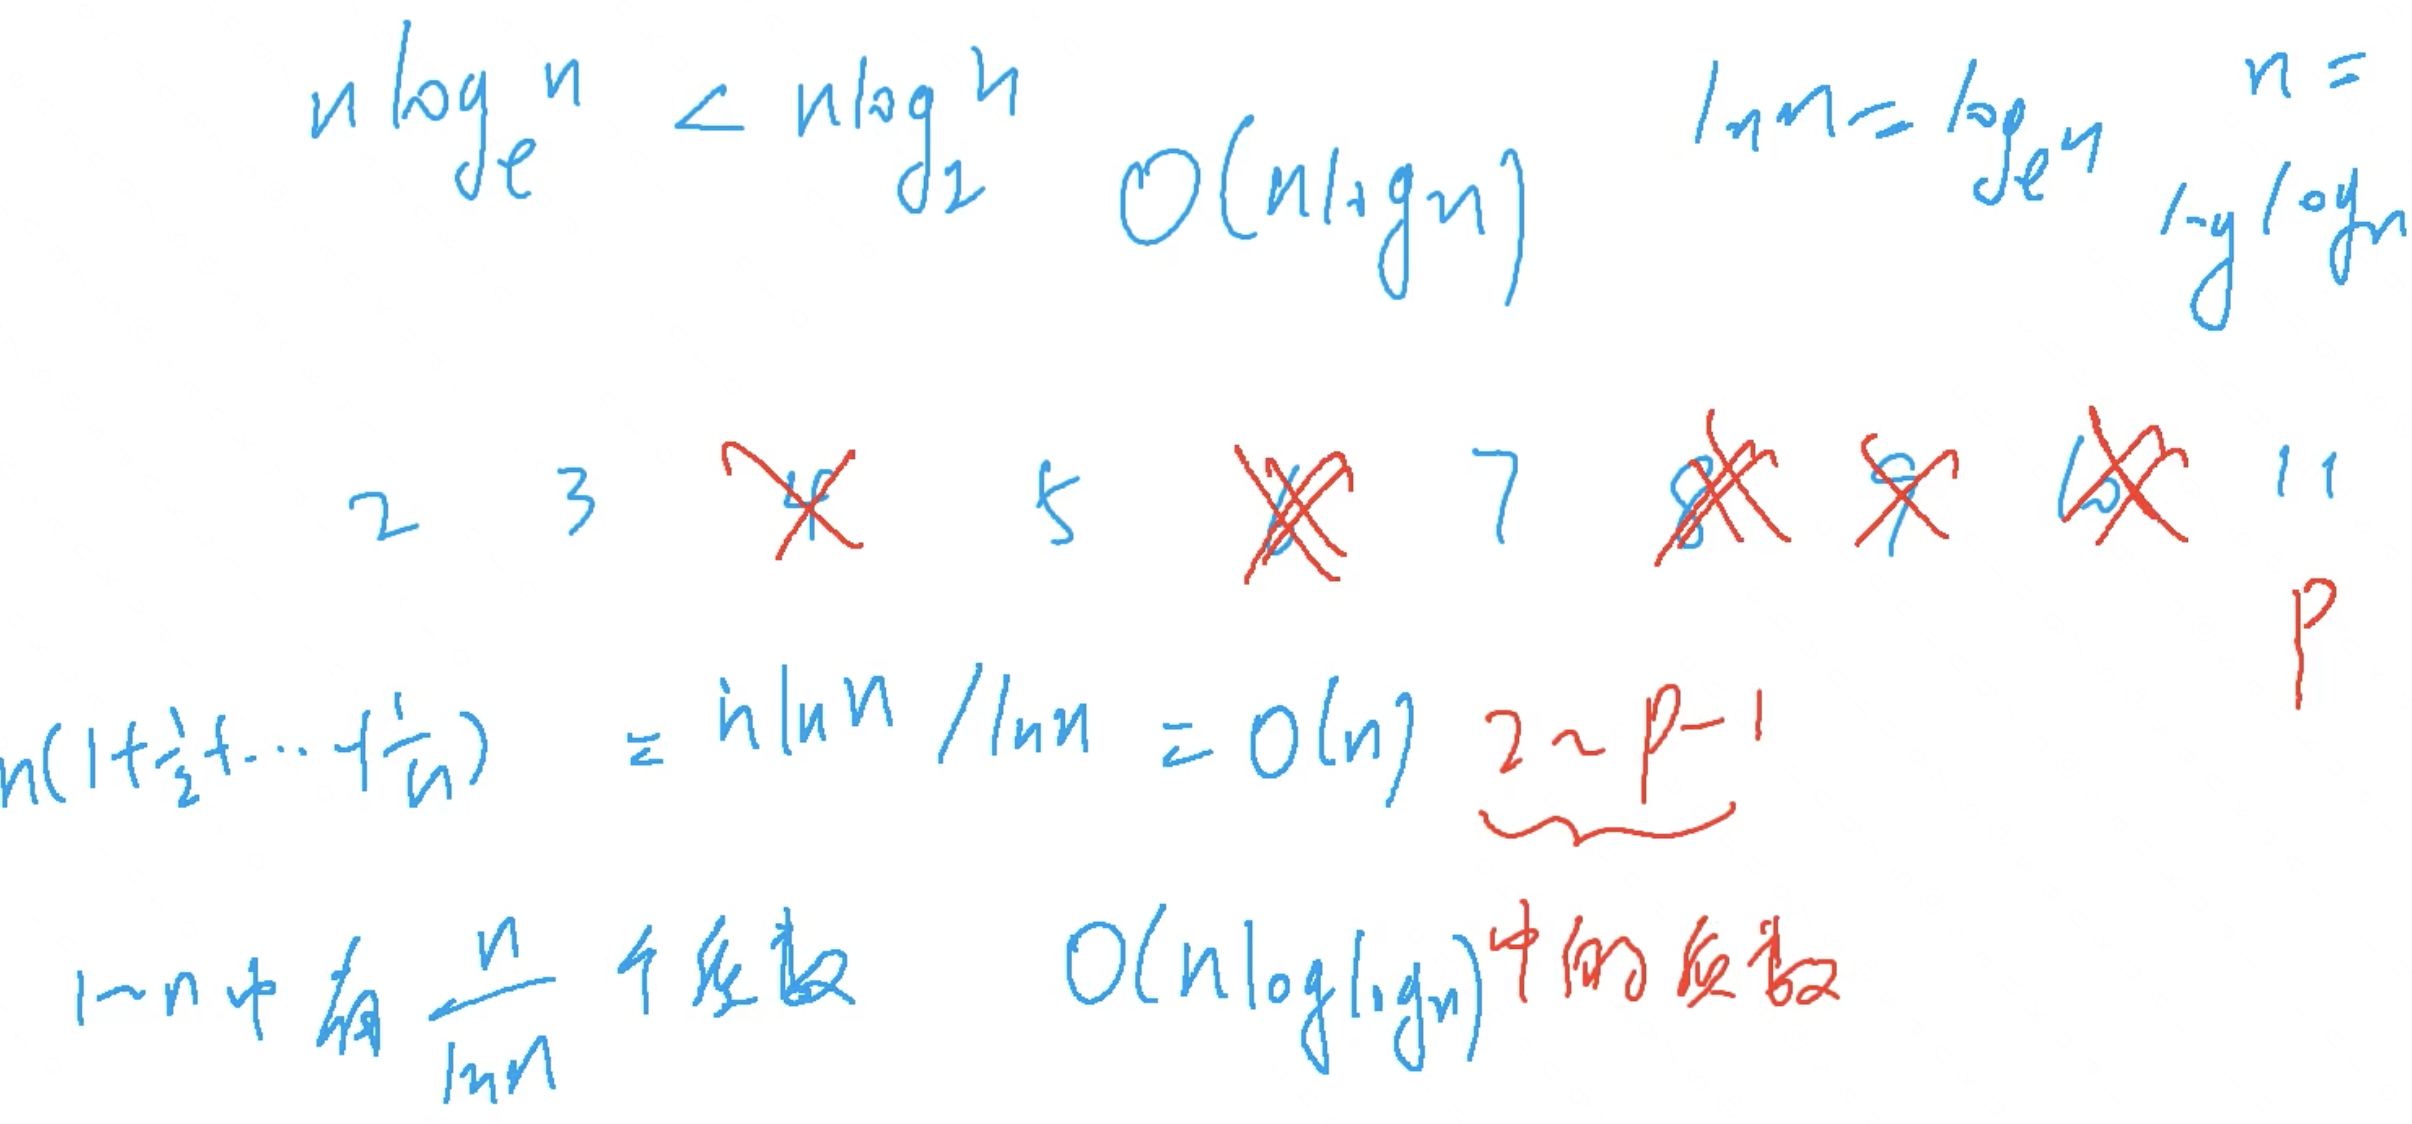 n log_e n < n log_2 n O(nlogn) ln n = log_e n n =
log logn
2 3 4 5 6 7 8 9 10 11
P
n(1+1/2+...+1/n) = n ln n / ln n = O(n) 2~P-1
1~n中有 n/ln n 个质数 O(nloglogn) 中的质数